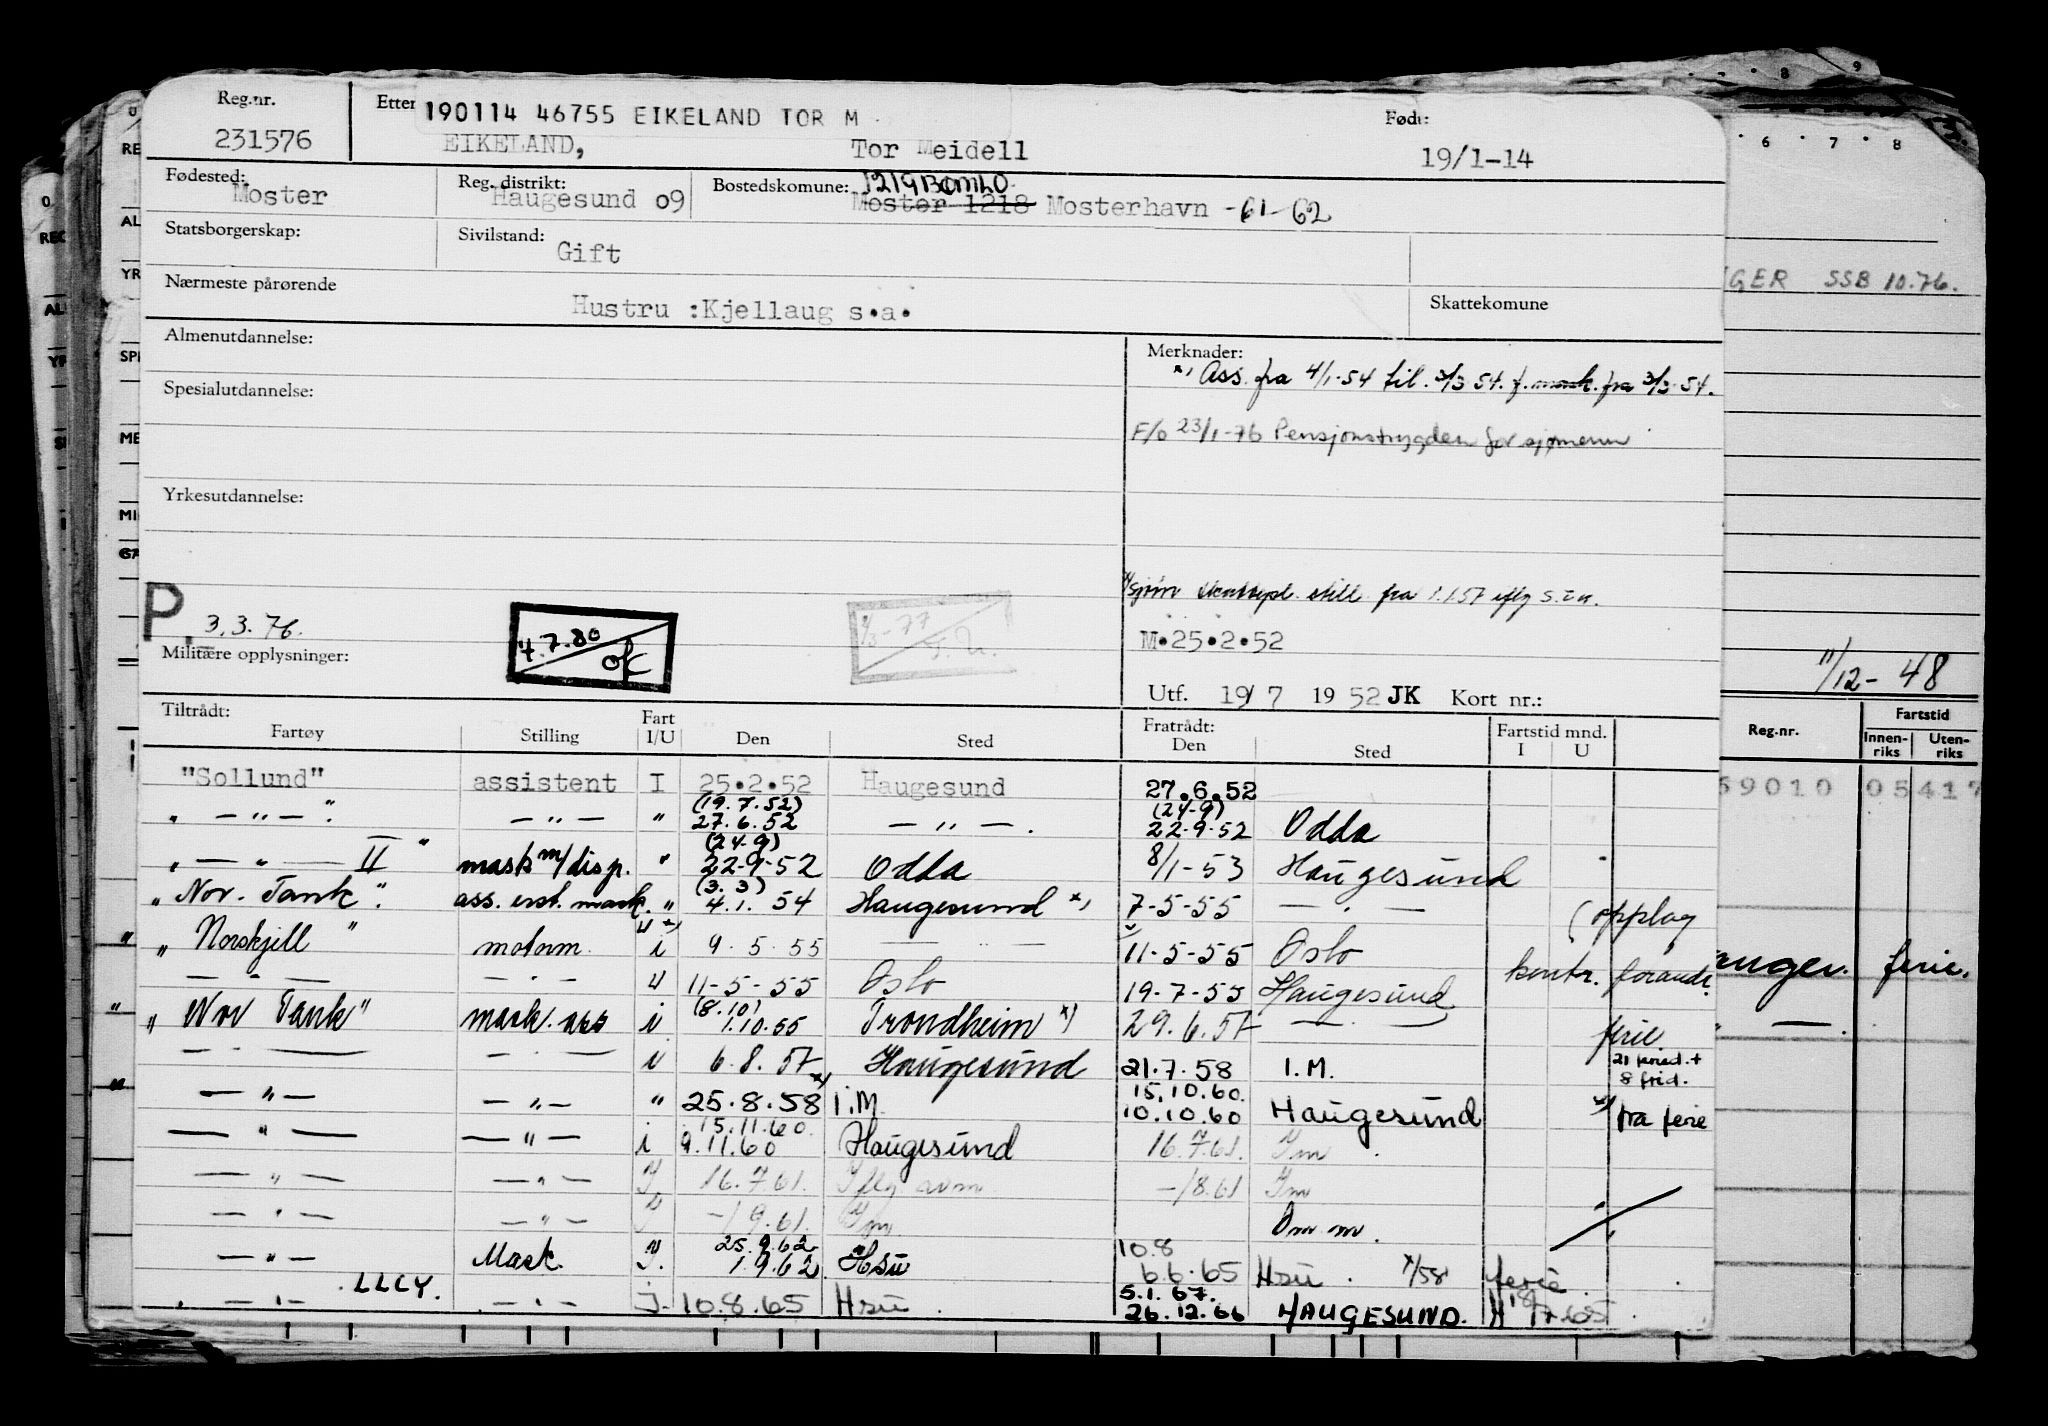 Reg.nr. Etter 190114 46755 EIKELAND TOR M Født:
231576 EIKELAND, Tor Meidell 19/1-14
Fødested: Reg. distrikt: Bostedskomune: 1219 BØMLO
Moster Haugesund 09 Moster 1218 Mosterhavn -61-62
Statsborgerskap: Sivilstand: Gift
Nærmeste pårørende
Hustru :Kjellaug s.a. Skattekomune
Almenutdannelse: Merknader:
x) Ass. fra 4/1-54 til. 3/3 54. f. mask. fra 3/3-54.
Spesialutdannelse:
F/o 23/1-76 Pensjonstrygden for sjømenn
Yrkesutdannelse:
still. fra 1.1.57 iflg
P 3.3.76. 4.7.80 ok M.25.2.52
Militære opplysninger:
Utf. 19/7 1952 JK Kort nr.:
Tiltrådt: Fart Fratrådt: Fartstid mnd.
Fartøy Stilling I/U Den Sted Den Sted I U
"Sollund" assistent I 25.2.52 Haugesund 27.6.52
(19.7.52) (24-9)
" — " — " — " — " 27.6.52 — " — . 22-9-52 Odda
(24-9)
" — " — II " mask m/disp. " 22-9-52 Odda 8/1-53 Haugesund
(3.3)
" Nor. Tank " ass. erst. mask. " 4.1. 54 Haugesund x) 7-5-55 — . — (opplag
" Norskjell " motorm. i 9. 5. 55 — — 11-5-55 Oslo
— " — — " — U 11-5-55 Oslo 19-7-55 Haugesund kontr. forandr.
(8.10)
" Nor Tank " mask. ass i 1.10.55 Trondheim x) 29.6.57 — . — ferie.
— . — — . — i 6.8.57 Haugesund 21.7.58 I.M. 21 feried. +
8 frid.
15.10.60.
— " — — " — " 25.8.58 x) I.M. 10.10.60 Haugesund x) fra ferie
15.11.60.
— " — — " — i 9.11.60 Haugesund 16.7.61. Im
— " — — " — I 16.7.61. Iflg avm —/8.61 Im
— " — — " — I —/9.61. Im Om m.
25.9.62 10.8
— " — Mask. I. 1.9.62 Hsu 6.6.65 Hsu. x/58 ferie
LLCY. 5.1.67.
" — " — — " — I. 10.8.65 Hsu. 26.12.66 HAUGESUND.
GER SSB 10.76.
11/12-48
Reg.nr. Fartstid
Innen-riks Uten-riks
59010 05417
ferie.